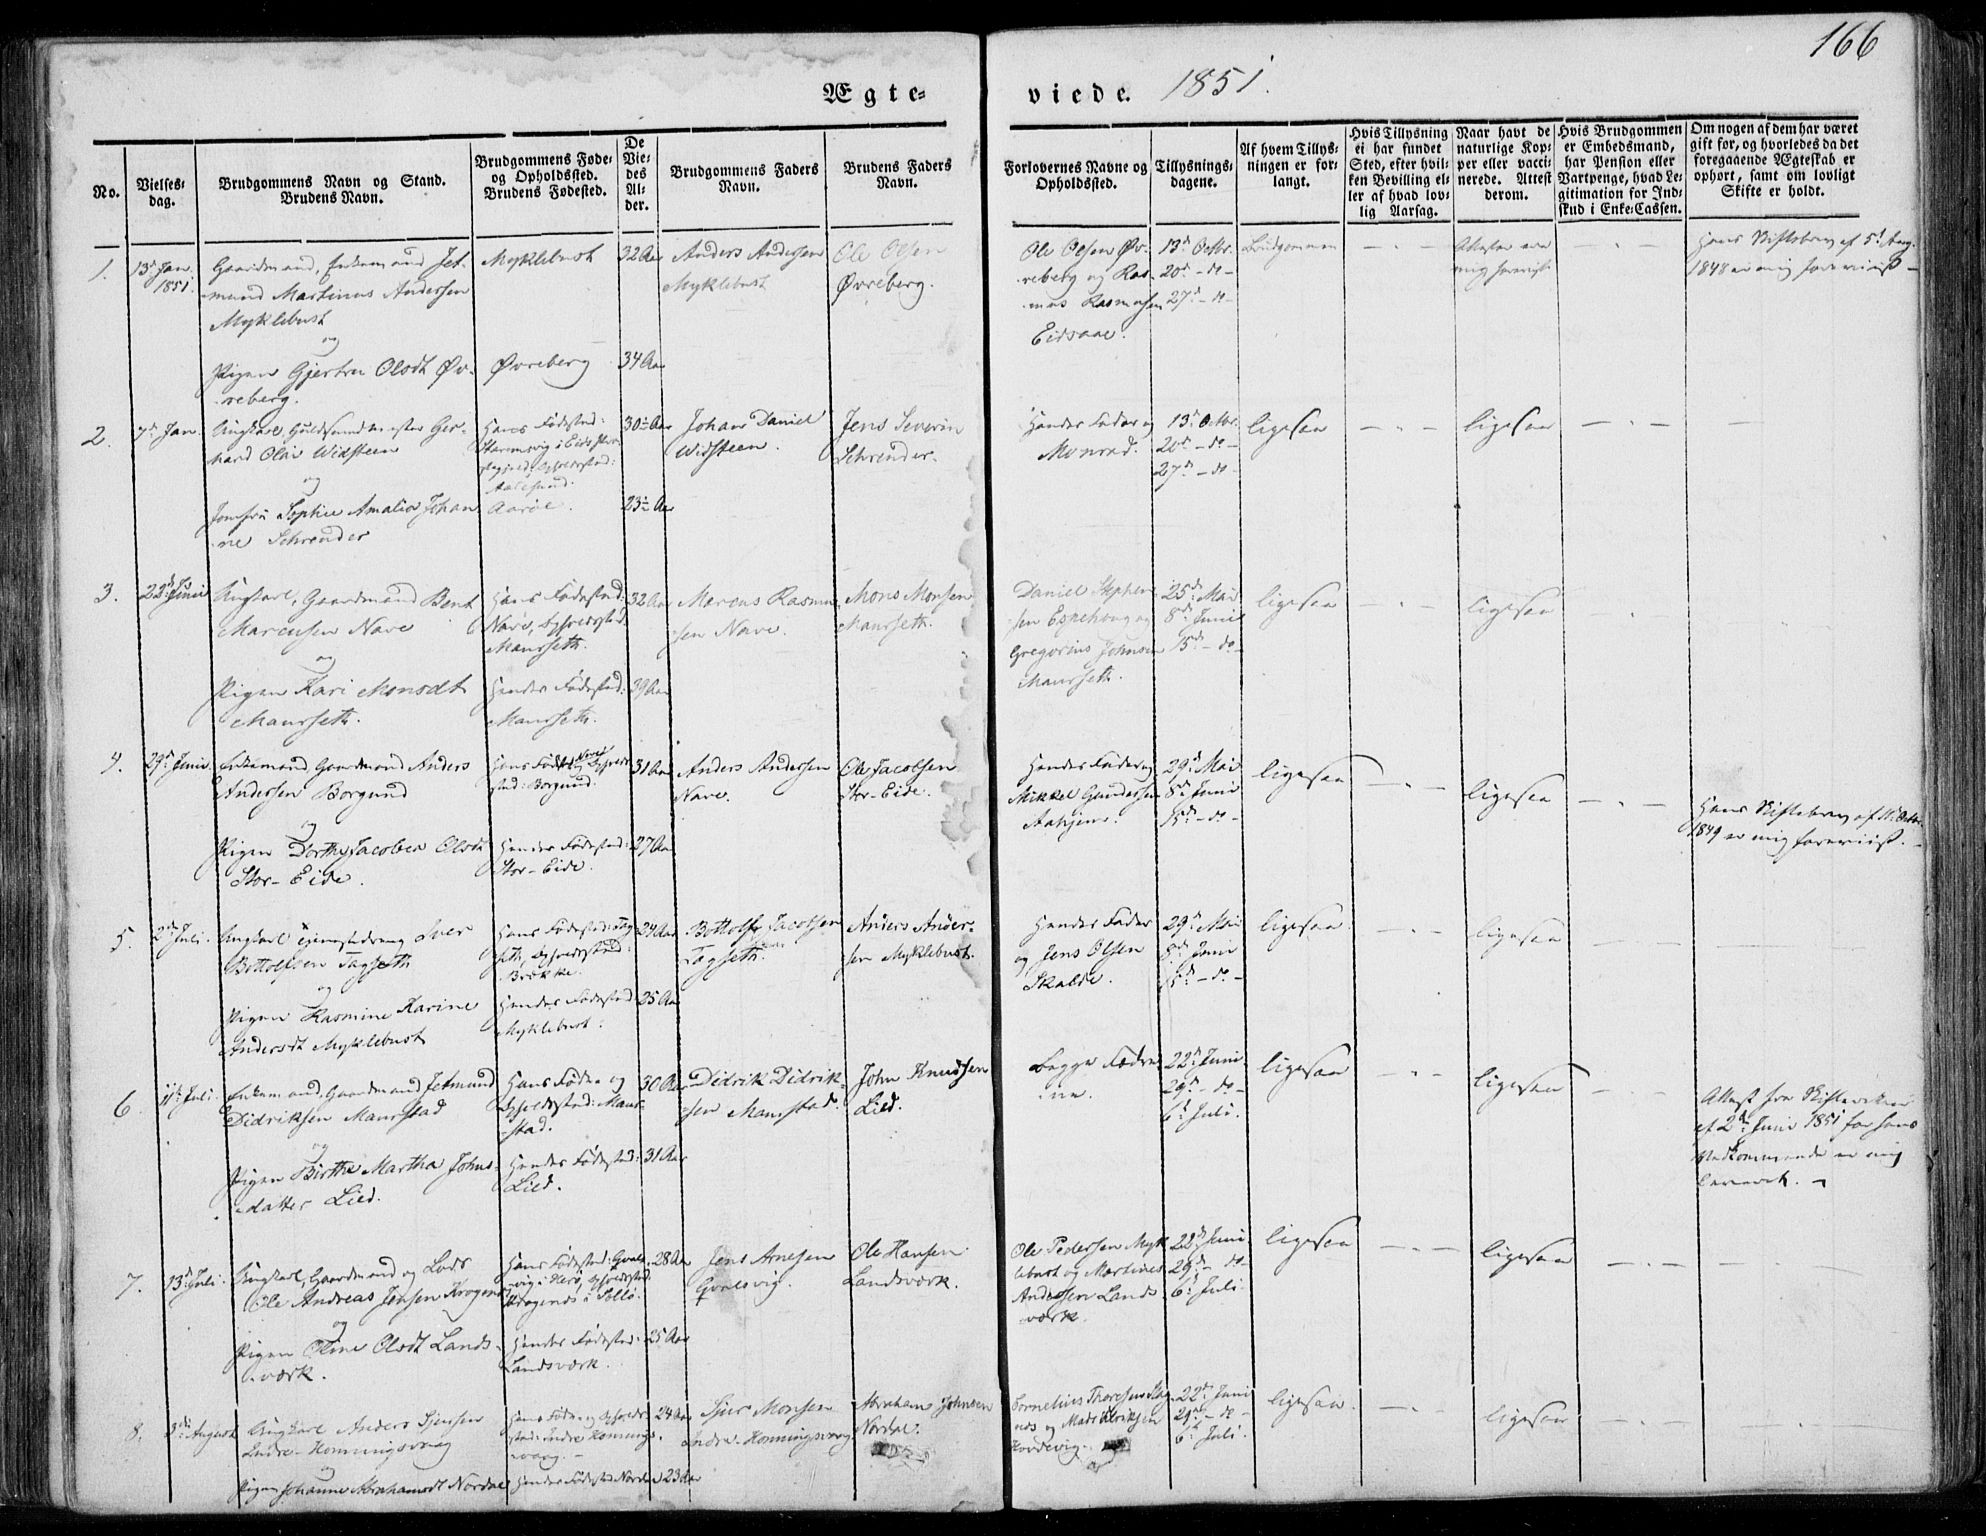 166
Ægte-
viede. 1851.
No.
Vielses-
dag.
Brudgommens Navn og Stand.
Brudens Navn.
Brudgommens Føde-
og Opholdssted.
Brudens Fødested.
De
Vie-
des
Al-
der.
Brudgommens Faders
Navn.
Brudens Faders
Navn.
Forlovernes Navne og
Opholdssted.
Tillysnings-
dagene.
Af hvem Tillys-
ningen er for-
langt.
Hvis Tillysning
ei har fundet
Sted, efter hvil-
ken Bevilling el-
ler af hvad lov-
lig Aarsag.
Naar havt de
naturlige Kop-
per eller vacci-
nerede. Attest
derom.
Hvis Brudgommen
er Embedsmand,
har Pension eller
Vartpenge, hvad Le-
gitimation for Ind-
skud i Enke-Cassen.
Om nogen af dem har været
gift før, og hvorledes da det
foregaaende Ægteskab er
ophørt, samt om lovligt
Skifte er holdt.
1.
13d Jan.
1851.
Gaardmand, Enkemand Jet-
mund Martinus Andersen
Myklebust
og
Pigen Gjertru Olsdt Øv-
reberg.
Myklebust
Øvreberg
32 Aar
34 Aar
Anders Andersen
Myklebust
Ole Olsen
Øvreberg.
Ole Olsen Øv-
reberg og Ras-
mus Rasmussen
Eidsaae.
13d Octbr.
20d - do -
27d - do -
Brudgommen
Attester ere
mig foreviist
Hans Skiftebrev af 5t Aug.
1848 er mig foreviist -
2.
7d Jan.
Ungkarl, Guldsmedmester Ger-
hard Olai Widsteen
og
Jomfru Sophie Amalia Johan-
ne Schrøuder
Hans Fødested:
i Eids Præ-
stegjeld, Opholdssted:
Aalesund.
Aarøe.
30 Aar
23 Aar
Johan Daniel
Widsteen.
Jens Severin
Schrøuder.
Hendes Fader og
Monrad.
13d Octbr.
20d - do -
27d - do -
ligesaa
ligesaa
3.
22d Junii
Ungkarl, Gaardmand Bent
Marcusen Nave
og
Pigen Kari Monsdt
Maurseth.
Hans Fødested:
Nave, Opholdssted
Maurseth.
Hendes Fødested:
Maurseth.
32 Aar
39 Aar
Marcus Rasmu-
sen Nave.
Mons Monsen
Maurseth.
Daniel Stephen-
sen Espehoug og
Gregorius Johnsen
Maurseth.
25d Mai
8d Junii
15d - do -
ligesaa
ligesaa
4.
29d Junii.
Enkemand, Gaardmand Anders
Andersen Borgund
og
Pigen Dorthe Jacobea Olsdt
Stor-Eide.
Hans Fødested Nave, Ophold-
sted: Borgund.
Hendes Fødested:
Stor-Eide.
31 Aar
27 Aar
Anders Andersen
Nave.
Ole Jacobsen
Stor-Eide.
Hendes Fader og
Mikkel Gundersen
Aahjem.
29d Mai
8d Junii
15d - do -
ligesaa
ligesaa
Hans Skiftebrev af 11t Octbr.
1849 er mig foreviist. -
5.
2d Juli.
Ungkarl Iver
Bottolfsen Tagseth
og
Pigen Rasmine Karine
Andersdt Myklebust
Hans Fødested: Tag-
seth, Opholdssted:
Brekke.
Hendes Fødested
Myklebust.
24 Aar
25 Aar
Bottolf Jacobsen
Tagseth.
Anders Ander-
sen Myklebust.
Hendes Fader
og Jens Olsen
Skalde.
29d Mai
8d Junii
15d - do -
ligesaa
ligesaa
6.
11t Juli.
Enkemand, Gaardmand Jetmund
Didriksen Maurstad
og
Pigen Birthe Martha Johns-
datter Lied.
Hans Føde- og
Opholdssted: Maur-
stad.
Hendes Fødested:
Lied.
30 Aar
31 Aar
Didrik Didrik-
sen Maurstad.
John Knudsen
Lied.
Begge Fædre-
ne.
22d Juni.
29d - do -
6t Juli.
ligesaa
ligesaa
Attest fra Skifteretten
af 2d Juni 1851 for hans
Vedkommende er mig
leveret. -
7.
13d Juli.
Ungkarl, Gaardmand og Lods
Ole Andreas Jensen Krogenes
og
Pigen Oline Olsdt Lands-
værk.
Hans Fødested: Gvals-
vig i Herø, Opholdssted
Krogenes i Sellø.
Hendes Fødested:
Landsværk.
28 Aar
25 Aar
Jens Arnesen
Gvalsvig.
Ole Hansen
Landsværk.
Ole Pedersen Myk-
lebust og Martinus
Andersen Lands-
værk.
22d Juni.
29d - do -
6t Juli.
ligesaa
ligesaa
8.
3d August
Ungkarl Anders Sjursen
Indre-Honningsvaag
og
Pigen Johanne Abrahamsdt Nordal
Hans Føde- og Opholds-
sted: Indre Honnings-
vaag. -
Hendes Fødested Nordal
24 Aar
23 Aar
Sjur Monsen
Indre-Honningsvaag
Abraham Johnsen
Nordal.
Cornelius Thoresen Rag-
nes og Mads Eliksen
Hovdevig.
22d Juni
29d - do -
6t Juli.
ligesaa
ligesaa